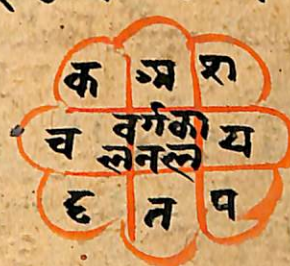 क अ श
च वर्गका य
लनल
ट त प